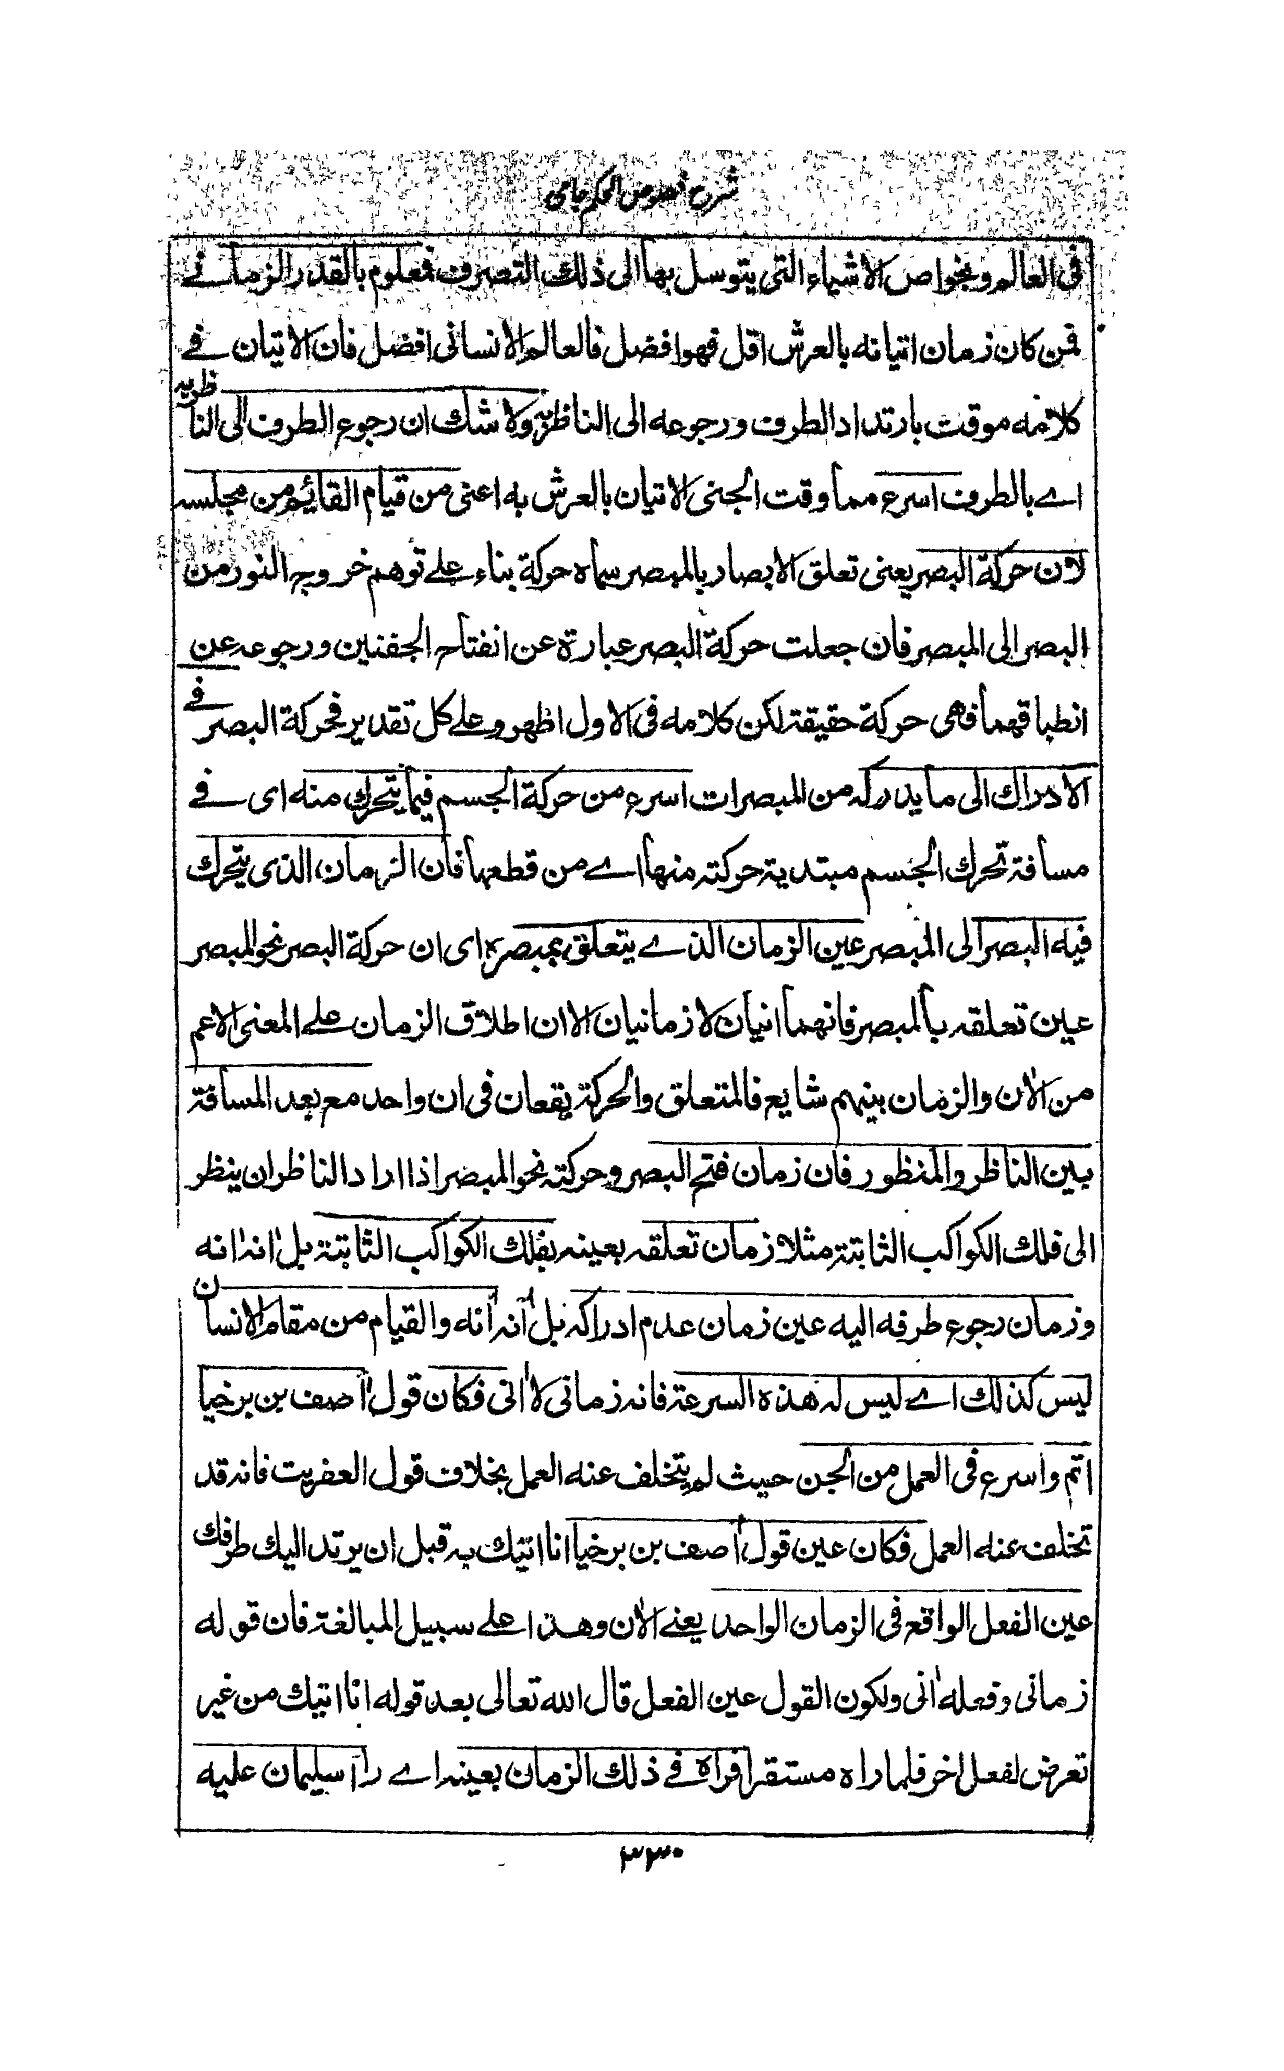 شرح فصوص الحكم جامى
فى العالم وبخواص الاشياء التى يتوسل بها الى ذلك التصرف فمعلوم بالقدر الزمانے
فمن كان زمان اتيانه بالعرش اقل فهو افضل فالعالم الانسانى افضل فان الاتيان فے
كلامه موقت بارتداد الطرف ورجوعه الى الناظربه ولا شك ان رجوع الطرف الى الناظربه
اے بالطرف اسرع مما وقت الجنى الاتيان بالعرش به اعنى من قيام القائم من مجلسه
لان حركة البصر يعنى تعلق الابصار بالمبصر سماه حركة بناء علے توهم خروج النور من
البصر الى المبصر فان جعلت حركة البصر عبارة عن انفتاح الجفنين ورجوعه عن
انطباقهما فهى حركة حقيقة لكن كلامه فى الاول اظهر وعلے كل تقدير فحركة البصر فے
الادراك الى ما يدركه من المبصرات اسرع من حركة الجسم فيما يتحرك منه اى فے
مسافة تحرك الجسم مبتدية حركته منها اے من قطعها فان الزمان الذى يتحرك
فيه البصر الى المبصر عين الزمان الذے يتعلق بمبصره اى ان حركة البصر نحو المبصر
عين تعلقه بالمبصر فانهما انيان لا زمانيان الا ان اطلاق الزمان علے المعنى الاعم
من الان والزمان بينهم شايع فالمتعلق والحركة يقعان فى ان واحد مع بعد المسافة
بين الناظر والمنظور فان زمان فتح البصر وحركته نحو المبصر اذا اراد الناظر ان ينظر
الى فلك الكواكب الثابتة مثلا زمان تعلقه بعينه بفلك الكواكب الثابتة بل انه انه
وزمان رجوع طرفه اليه عين زمان عدم ادراكه بل آنه آنه والقيام من مقام الانسان
ليس كذلك اے ليس له هذه السرعة فانه زمانى لا انى فكان قول آصف بن برخيا
اتم واسرع فى العمل من الجن حيث لم يتخلف عنه العمل بخلاف قول العفريت فانه قد
تخلف عنه العمل فكان عين قول آصف بن برخيا انا اتيك به قبل ان يرتد اليك طرفك
عين الفعل الواقع فى الزمان الواحد يعنے الان وهذا علے سبيل المبالغة فان قوله
زمانى وفعله انى ولكون القول عين الفعل قال الله تعالى بعد قوله انا اتيك من غير
تعرض لفعل اخر فلما راه مستقرا فراه فے ذلك الزمان بعينه اے رآ سليمان عليه
٣٣٠